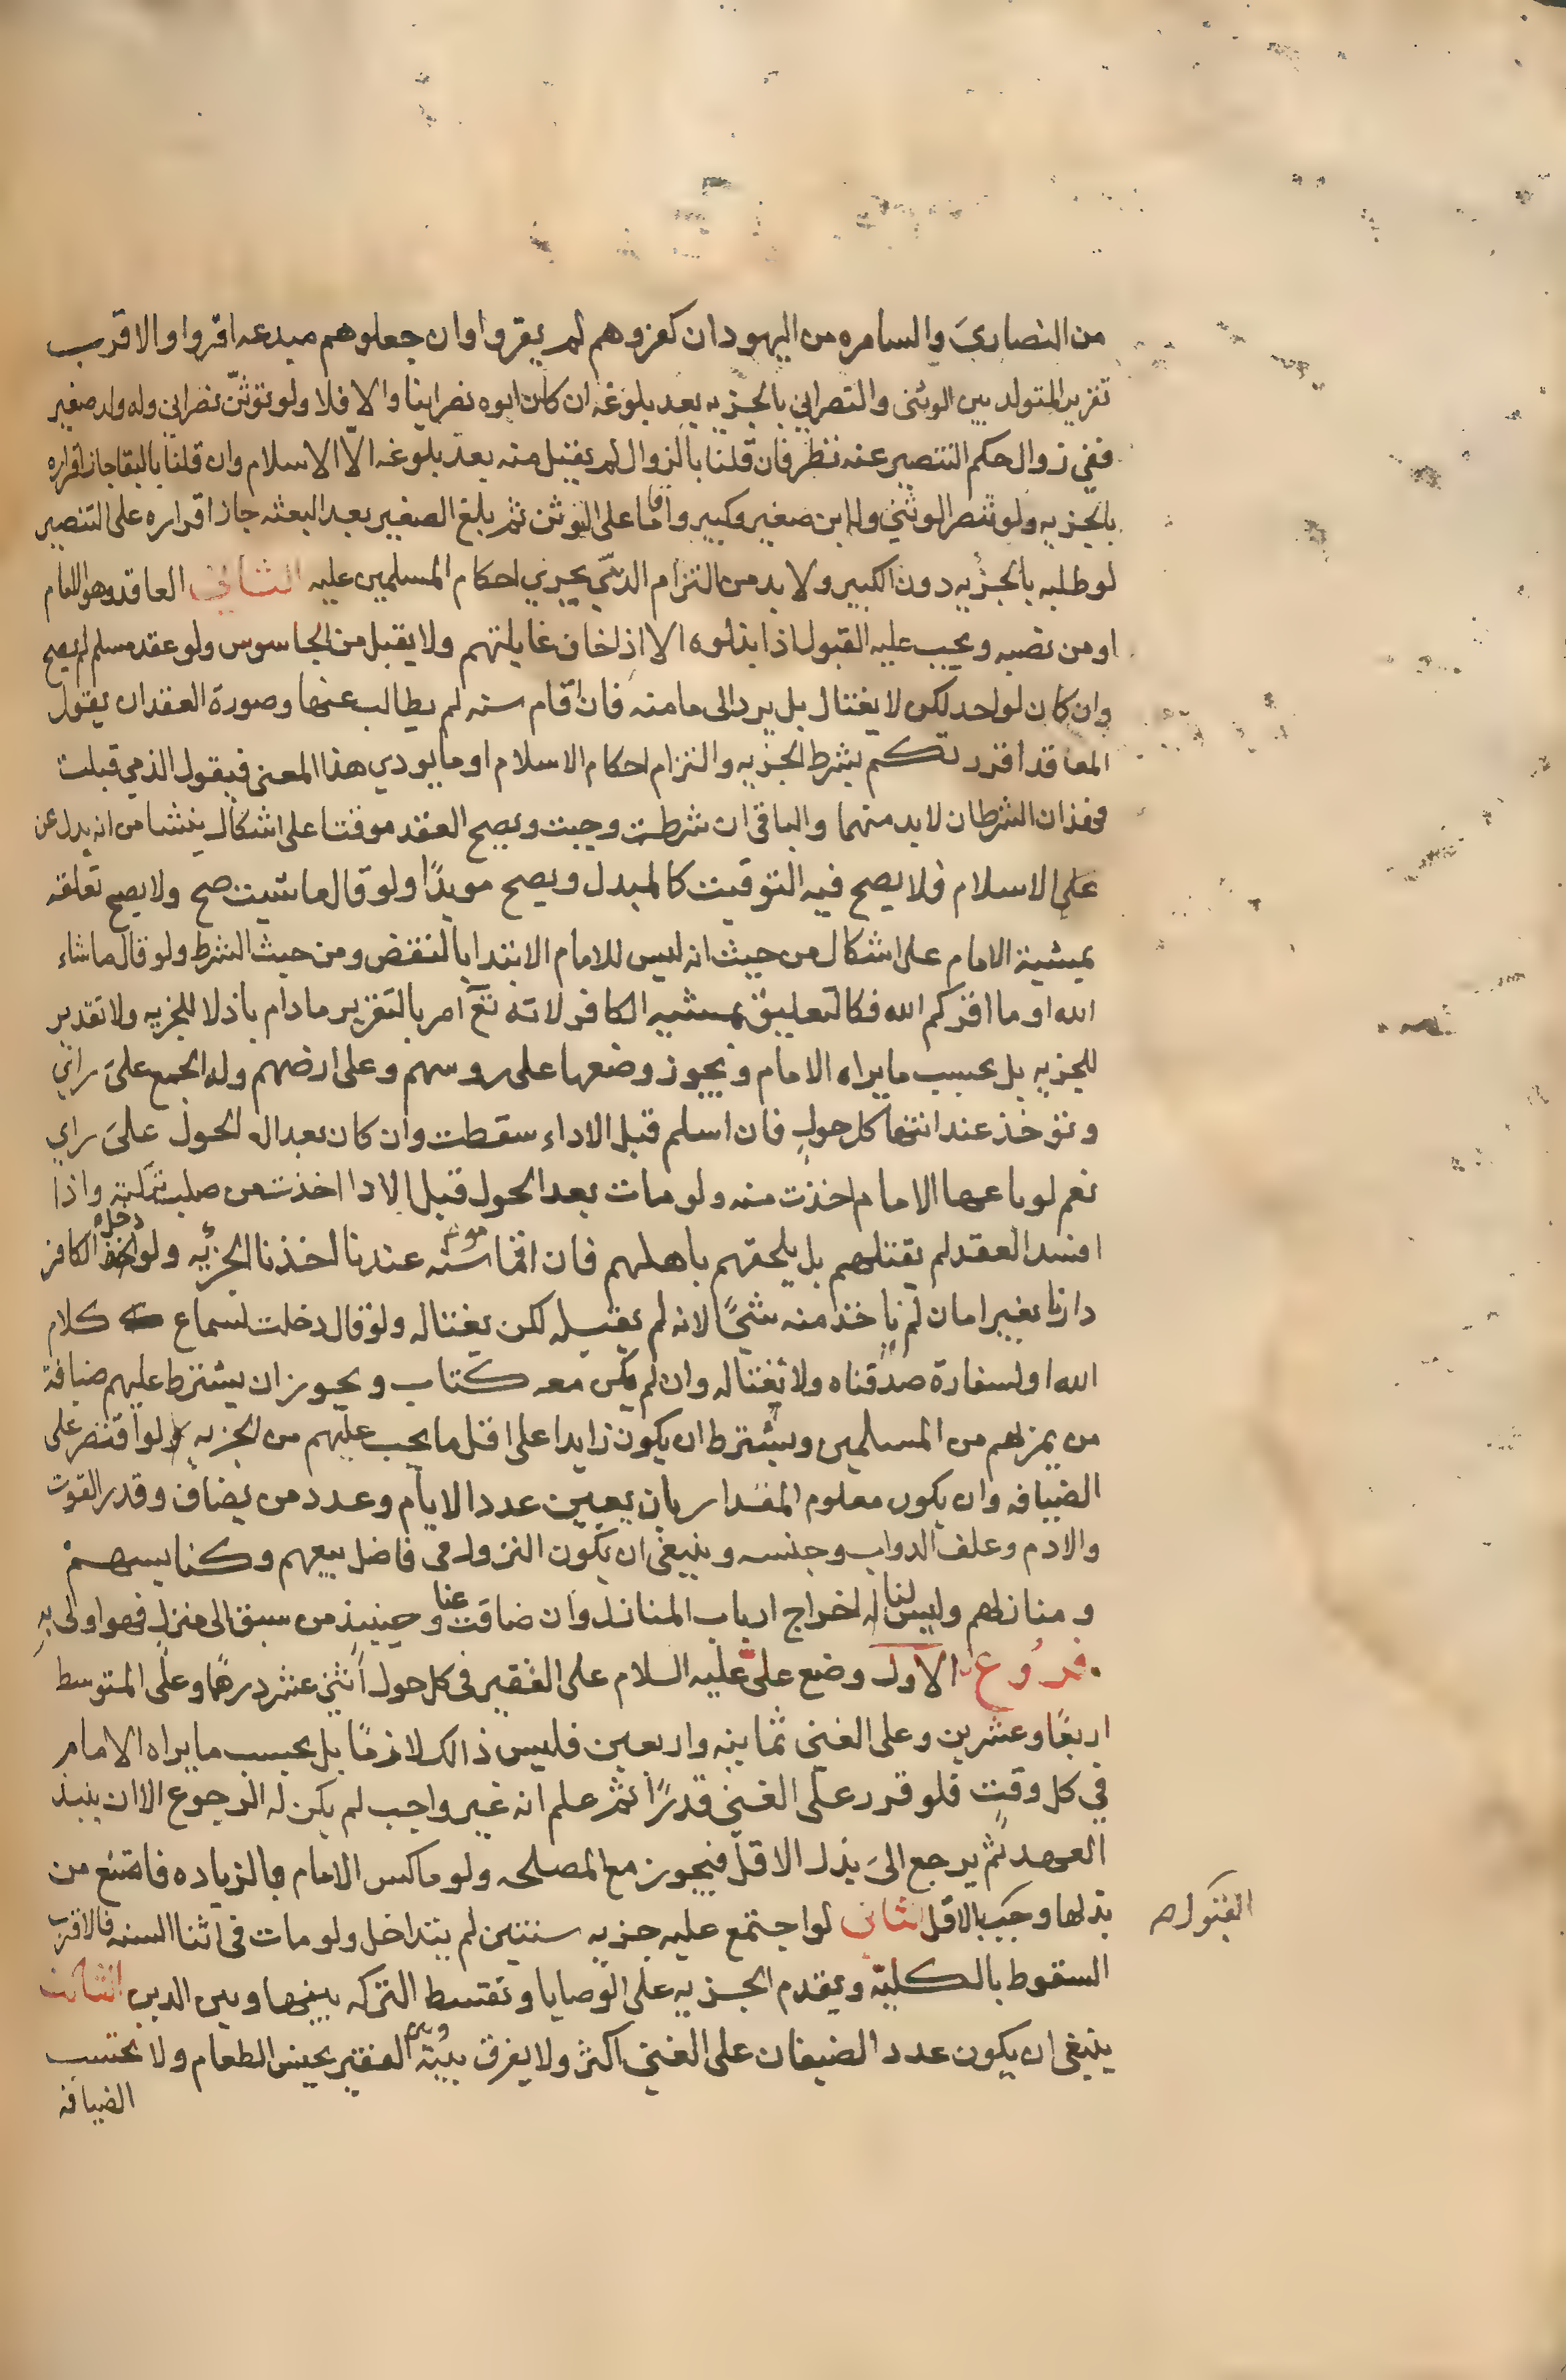 من النصارىَ والسامره من اليهود ان كفروهم لم يقروا وان جعلوهم مبدعه اقروا والاقرب
تقرير المتولد بين الوثنى والنصرانى بالجزيه بعد بلوغه ان كان ابوه نصرانيا والا فلا ولو توثنّ نصرانى وله ولد صغير
ففى زوال حكم التنصير عنه نظر فان قلنا بالزوال لم يقبل منه بعد بلوغه الّا الاسلام وان قلنا بالبقا جاز اقراره
بالجزيه ولو تنصر الوثني وله ابن صغير وكبير واقاما على التوثن ثم بلغ الصغير بعد البعثه جاز اقراره على التنصير
لو طلبه بالجزيه دون الكبير ولا بد من التزام الذمّي بجري احكام المسلمين عليه الثاني العاقد وهو الامام
او من نصبه ويجب عليه القبول اذا بذلوه الا اذا خاف غايلتهم ولا يقبل من الجاسوس ولو عقد مسلم لم يصح
وان كان لواحد لكن لا يغتال بل يرد الى مامنه فان اقام سنه لم يطالب عنها وصورة العقد ان يقول
العاقد اقررتكم بشرط الجزيه والتزام احكام الاسلام او ما يودي هذا المعنى فيقول الذمي قبلت
فهذان الشرطان لابد منهما والباقى ان شرطت وجبت ويصح العقد موقتا على اشكال ينشا من انه بدل عن
على الاسلام فلا يصح فيه التوقيت كالمبدل ويصح موبدًا ولو قال ما شيت صح ولا يصح تعلقه
بمشية الامام على اشكال من حيث انه ليس للامام الابتدا بالنقض ومن حيث الشرط ولو قال ما شاء
الله او ما اقركم الله فكالتعليق بمشيه الكافر لانه تع امر بالتقرير مادام باذلا للجزيه ولا تقدير
للجزيه بل بحسب مايراه الامام ويجوز وضعها على روسهم وعلى ارضهم وله الجمع علىَ راي
وتوخذ عند انتها كل حول فان اسلم قبل الاداء سقطت وان كان بعد الحول علىَ راي
نعم لو باعها الامام اخذت منه ولو مات بعد الحول قبل الادا اخذت من صلب تركته واذا
افسد العقد لم يقتلهم بل يلحقهم باهلهم فان اقاموا سنه عندنا اخذنا الجزيه ولو دخل الكافر
دارنا بغير امان لم ناخذ منه شيًا لانه لم يقبله لكن يغتاله ولو قال دخلت لسماع كلام
الله او لسفارة صدقناه ولا نغتاله وان لم يكن معه كتاب ويجوز ان يشترط عليهم ضيافة
من يمر بهم من المسلمين ويشترط ان يكون زايدا على اقل ما يجب عليهم من الجزيه لو اقتصر على
الضيافه وان يكون معلوم المقدار بان يعين عدد الايام وعدد من يضاف وقدر القوت
والادم وعلف الدواب وجنسه وينبغى ان يكون النزول فى فاضل بيعهم وكنايسهم
ومنازلهم وليس لنا اخراج ارباب المنازل وان ضاقت عنا وحينيذ من سبق الى منزل فهو اولى به
فروع الاول وضع علىّ عليه السلام على الفقير فى كل حول اثنى عشر درهمًا وعلى المتوسط
اربعًا وعشرين وعلى الغنى ثمانيه واربعين فليس ذالك لازمًا بل بحسب مايراه الامام
في كل وقت فلو قرر على الغنى قدرًا ثم علم انه غير واجب لم يكن له الرجوع الا ان ينبذ
العهد ثم يرجع الىَ بذل الاقل فيجوز مع المصلحه ولو ماكس الامام بالزياده فامتنع من
بذلها وجب بالاقل الثانى لو اجتمع عليه جزيه سنتين لم يتداخل ولو مات فى اثنا السنه فالاقرب
السقوط بالكلية ويقدم الجزيه على الوصايا وتقسط التركه بينها وبين الدين الثالث
ينبغى ان يكون عدد الضيفان على الغنى اكثر ولا يفرق بينه وبين الفقير بجنس الطعام ولا تحتسب
الضيافه